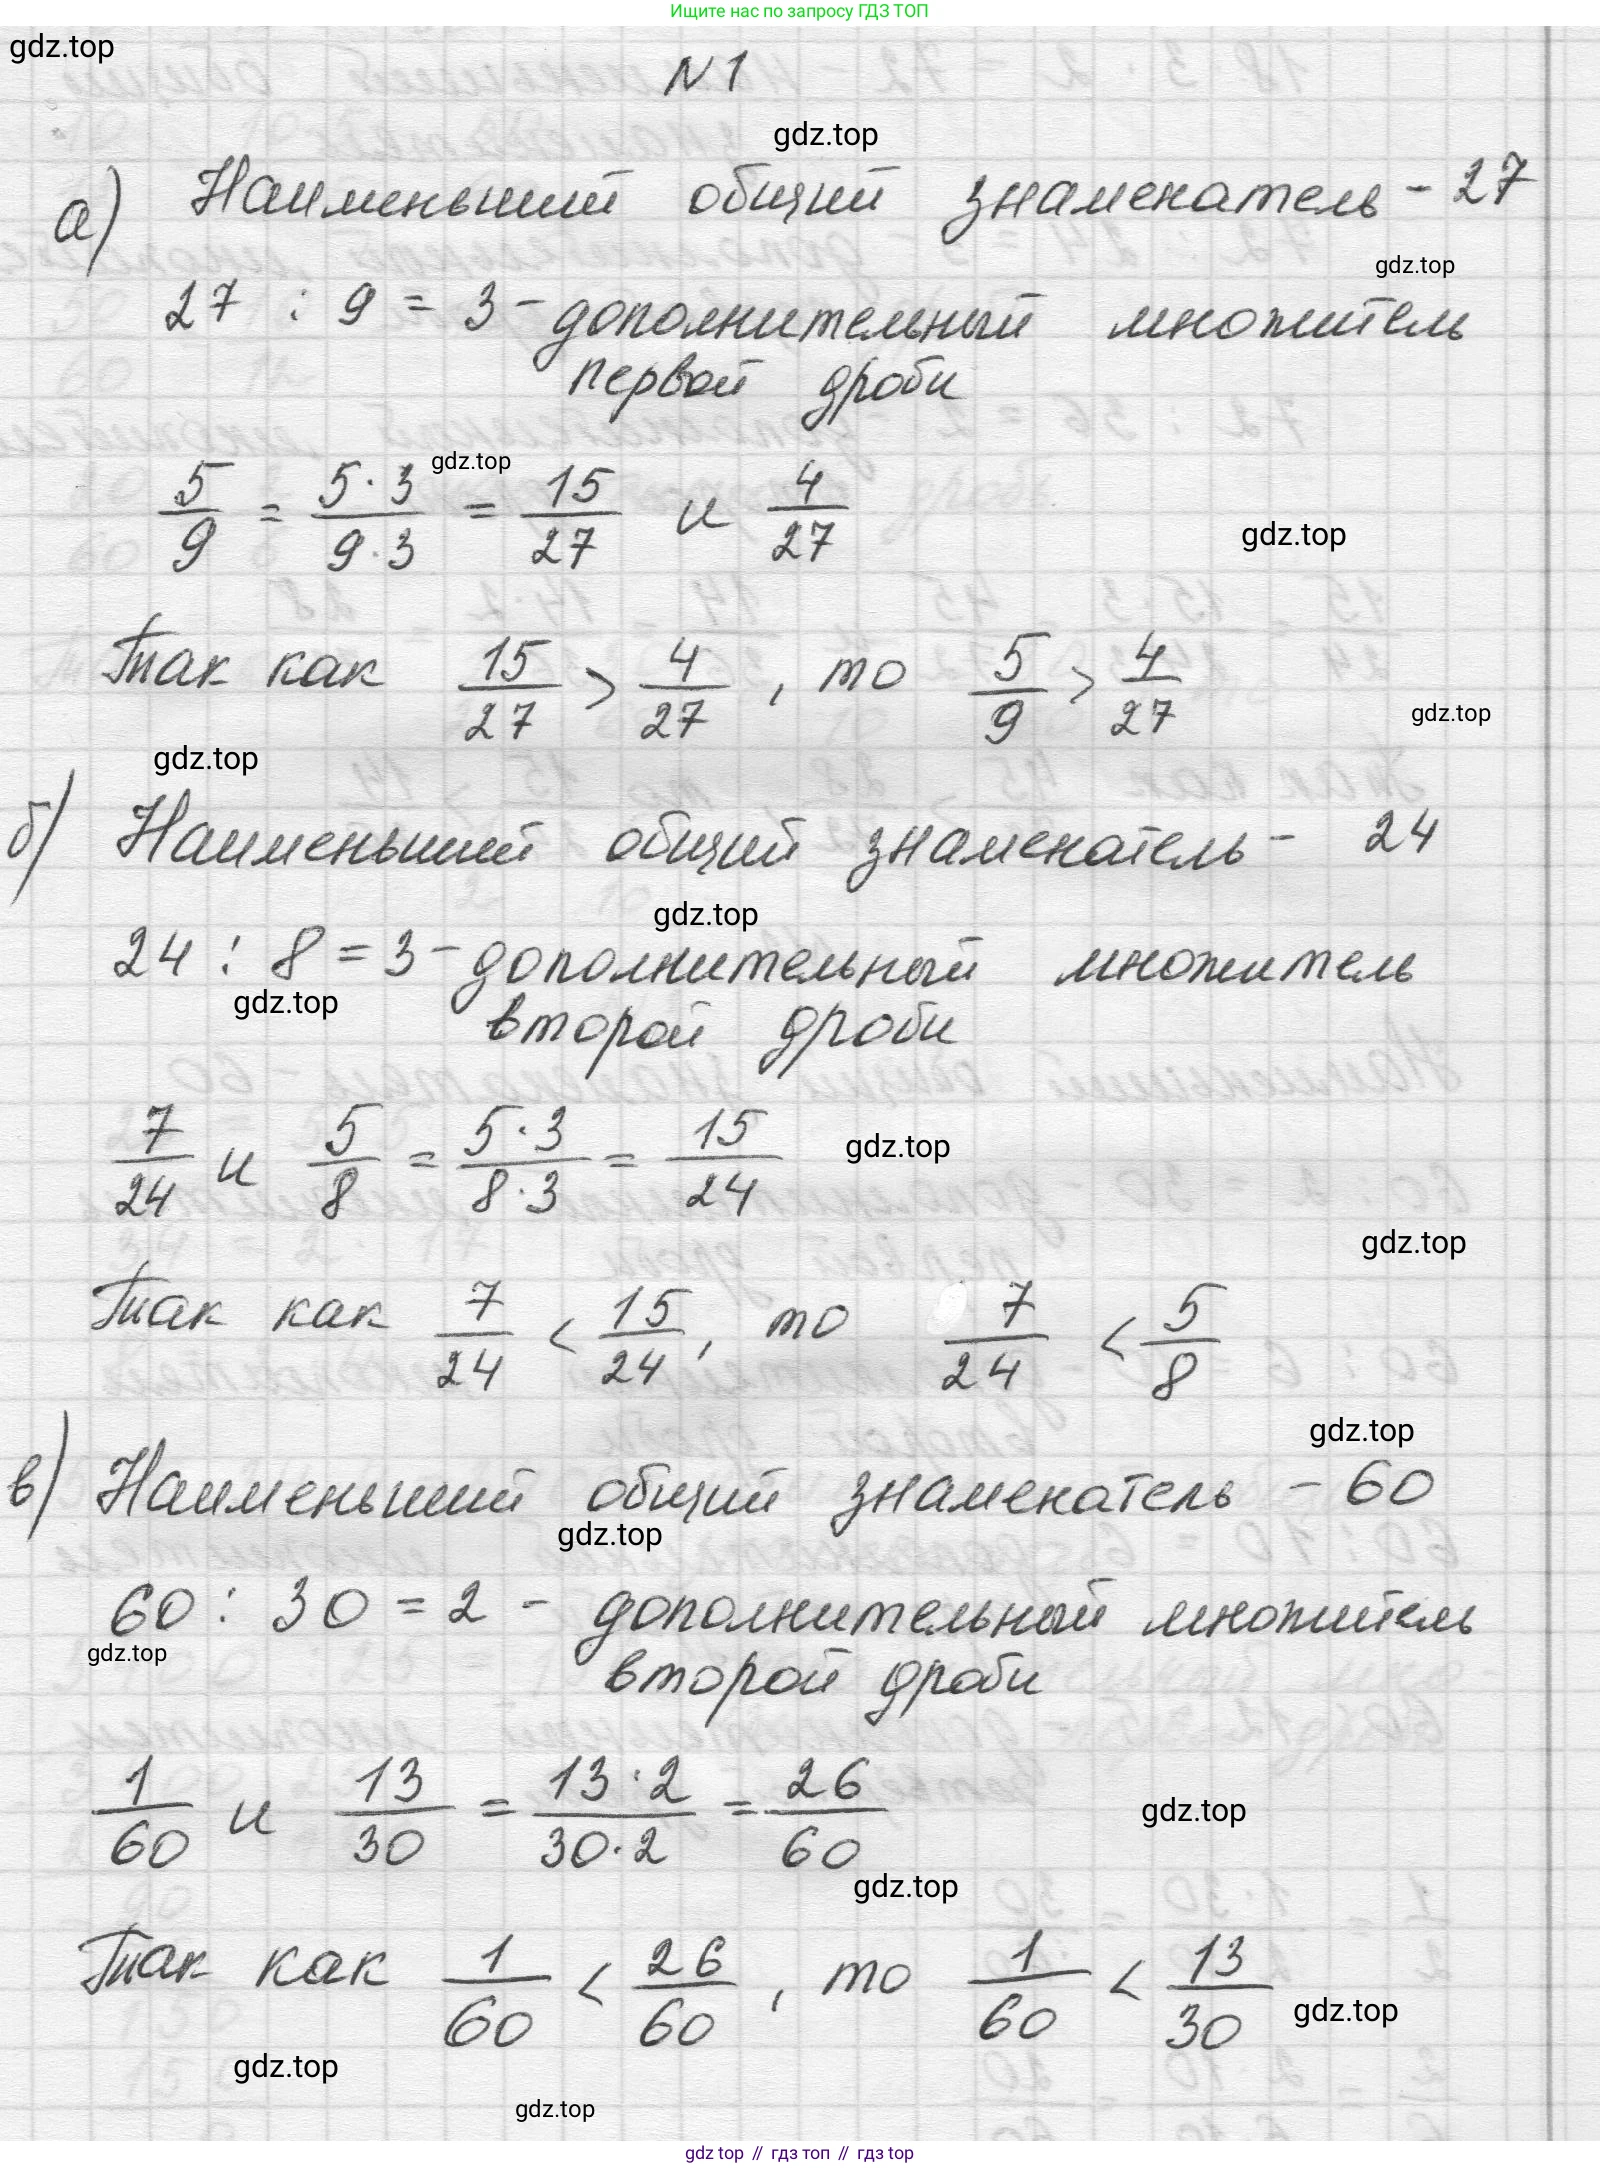 Ищите нас по запросу ГДЗ ТОП
gdz.top
N 1
gdz.top
а) Наименьший общий знаменатель - 27
gdz.top
27 : 9 = 3 - дополнительный множитель
первой дроби
gdz.top
5/9 = 5·3/9·3 = 15/27 и 4/27
gdz.top
Так как 15/27 > 4/27, то 5/9 > 4/27
gdz.top
gdz.top
б) Наименьший общий знаменатель - 24
gdz.top
24 : 8 = 3 - дополнительный множитель
gdz.top
второй дроби
7/24 и 5/8 = 5·3/8·3 = 15/24
gdz.top
gdz.top
Так как 7/24 < 15/24, то 7/24 < 5/8
gdz.top
в) Наименьший общий знаменатель - 60
gdz.top
60 : 30 = 2 - дополнительный множитель
gdz.top
второй дроби
1/60 и 13/30 = 13·2/30·2 = 26/60
gdz.top
gdz.top
Так как 1/60 < 26/60, то 1/60 < 13/30
gdz.top
gdz.top
gdz.top
gdz top // гдз топ // гдз top